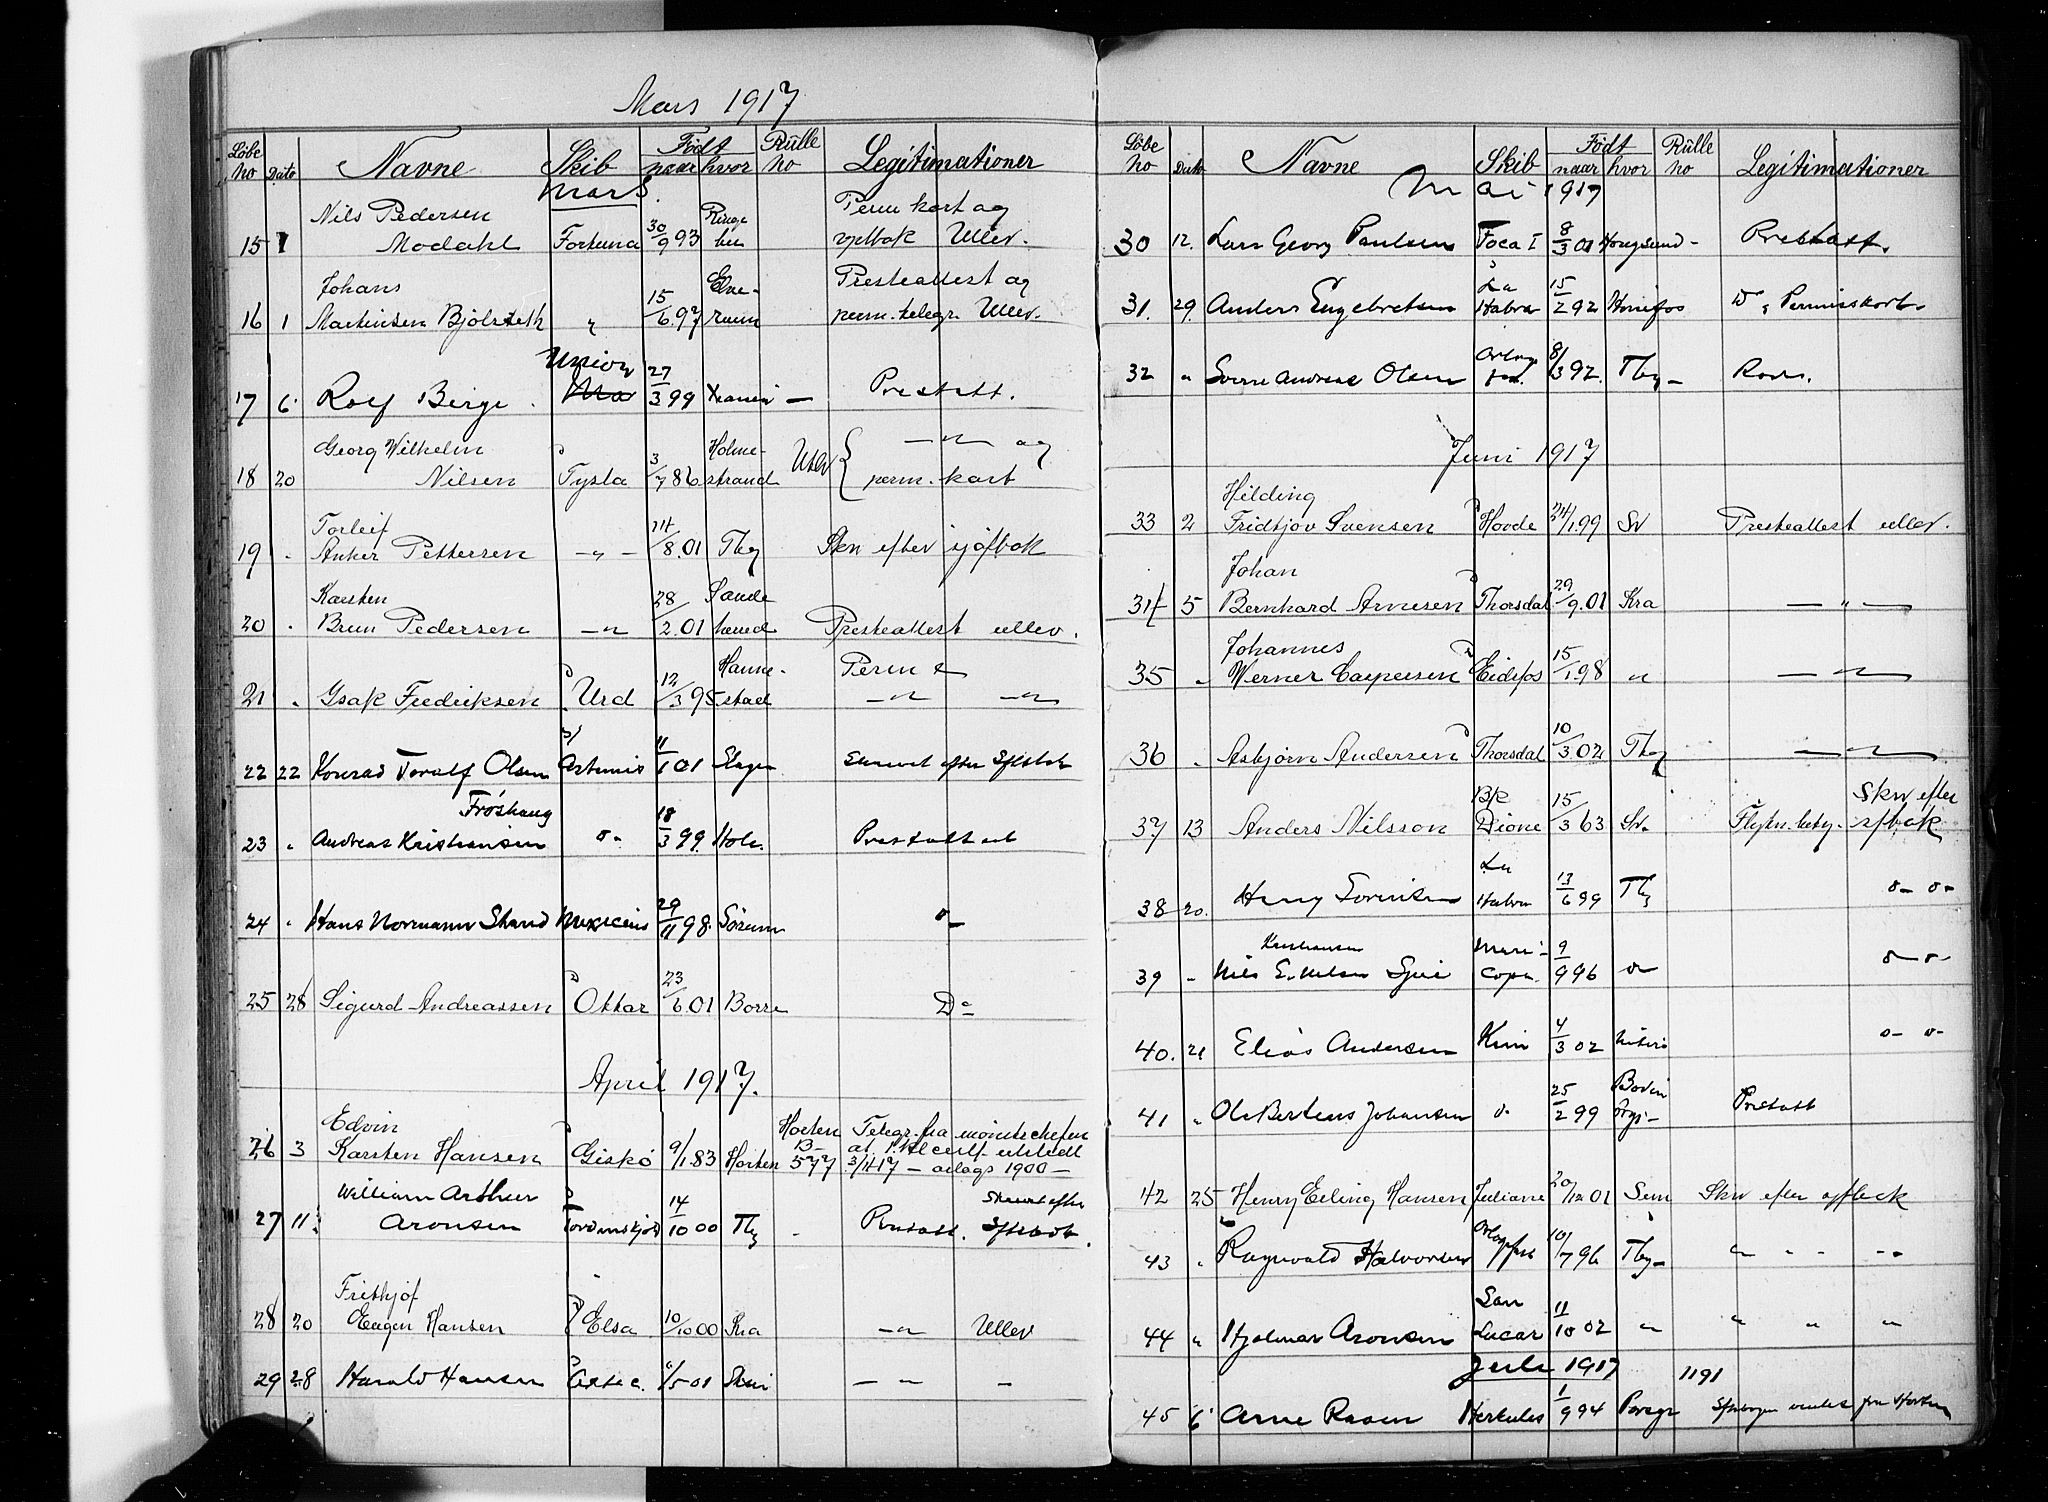 Mars 1917
Løbe no Dato Navne Skib Født naar hvor Rulle no Legitimationer
Mars
15 1 Nils Pedersen Modahl Fortuna 30/9 93 Ringebu Perm kort og
Ullev.
16 1 Johans Martinsen " 15/6.97 Elverum Presteattest og
perm. telegr. Ullev.
17 6 Rolf Berge Union 27/3 99 Xania — Prestatt.
18 20 Georg Wilhelm Nilsen Tysla 3/7 86 Holmestrand Utlev —"— og
perm. kort
19 - Torleif Anker Pettersen —"— 24/8.01 Tbg Skr efter sjøfbok
20 . Karsten Brun Pedersen —"— 28/2.01 Sandeherred Presteattest utlev.
21 . Isak Fredriksen Urd 12/3 95 Hannestad Perm &
—"— —"—
22 22 Konrad Toralf Olsen Artemis 11/1 01 Slagen Skrevet efter Sjfbok
23 . Frøshaug Andreas Kristiansen o- 18/3 99. Hole. Prestatt
24 . Hans Normann Strand Mexicano 29/11 98. Sørum o-
25 28 Sigurd Andreassen Ottar 23/6.01 Borre Do
April 1917.
26 3 Edvin Karsten Hansen Giskø 9/1 83 Horten Horten B- 577 Telegr. fra mønstr.chefen
3/4 17 — avlags 1900 —
27 11 William Arthur Aronsen Tordenskjold 14/10 00 Tbg - Prestatt. Skrevet efter Sjfbok.
28 20 Frithjof Eugen Hansen Elsa 10/10 00 Kra —"— Ullev
29 28 Harald Hansen 6/5 01 — " — —
Løbe no Dato Navne Skib Født naar hvor Rulle no Legitimationer
Mai 1917
30 12. Lars Georg Paulsen Foca I 8/3 01 Hougsund - Prestatt.
31. 29. Anders Engebretsen La Habra 15/2 92 Hønefos Permisskort
32 " Sverre Andreas Olsen 8/3 92. Tbg —
Juni 1917
33 2 Hilding Fridtjov Svensen Hovde 24/1.99 Sv Presteattest utlev.
34 5 Johan Bernhard Arnesen Thorsdal 29/9.01 Kra — " —
35 " Johannes Werner Caspersen Eidsfos 15/1.98 " — " —
36 . Asbjørn Andersen Thorsdal 10/3.02 Tbg — " —
37 13 Anders Nilsson Bk Dione 15/3 63 Sv. Flytn.bety. Skr efter sjfbok
38 20. Henry Sørensen La Habra 13/6 99 Tbg o- o-
39 " Kristiansen Nils Maricopa. 9/9 96 o- o- o-
40. 21 Eliás Andersen Kim 4/3 02 o- o-
41 " Ole Bertens Johansen o. 25/2 99 Bodin Prestatt
42 25 Henry Erling Hansen Juliane 20/12 01 Sem Skr efter sjfbok
43 " Ragnvald Halvorsen 10/7 96 Tbg — " " " "
44 " Hjalmar Aronsen San Lucar 11/10 02 " " " "
Juli 1917 1191
45 6 Arne Raaen Herkules 1/9 94 Porsgr Sjfartsbogen ventes fra Horten